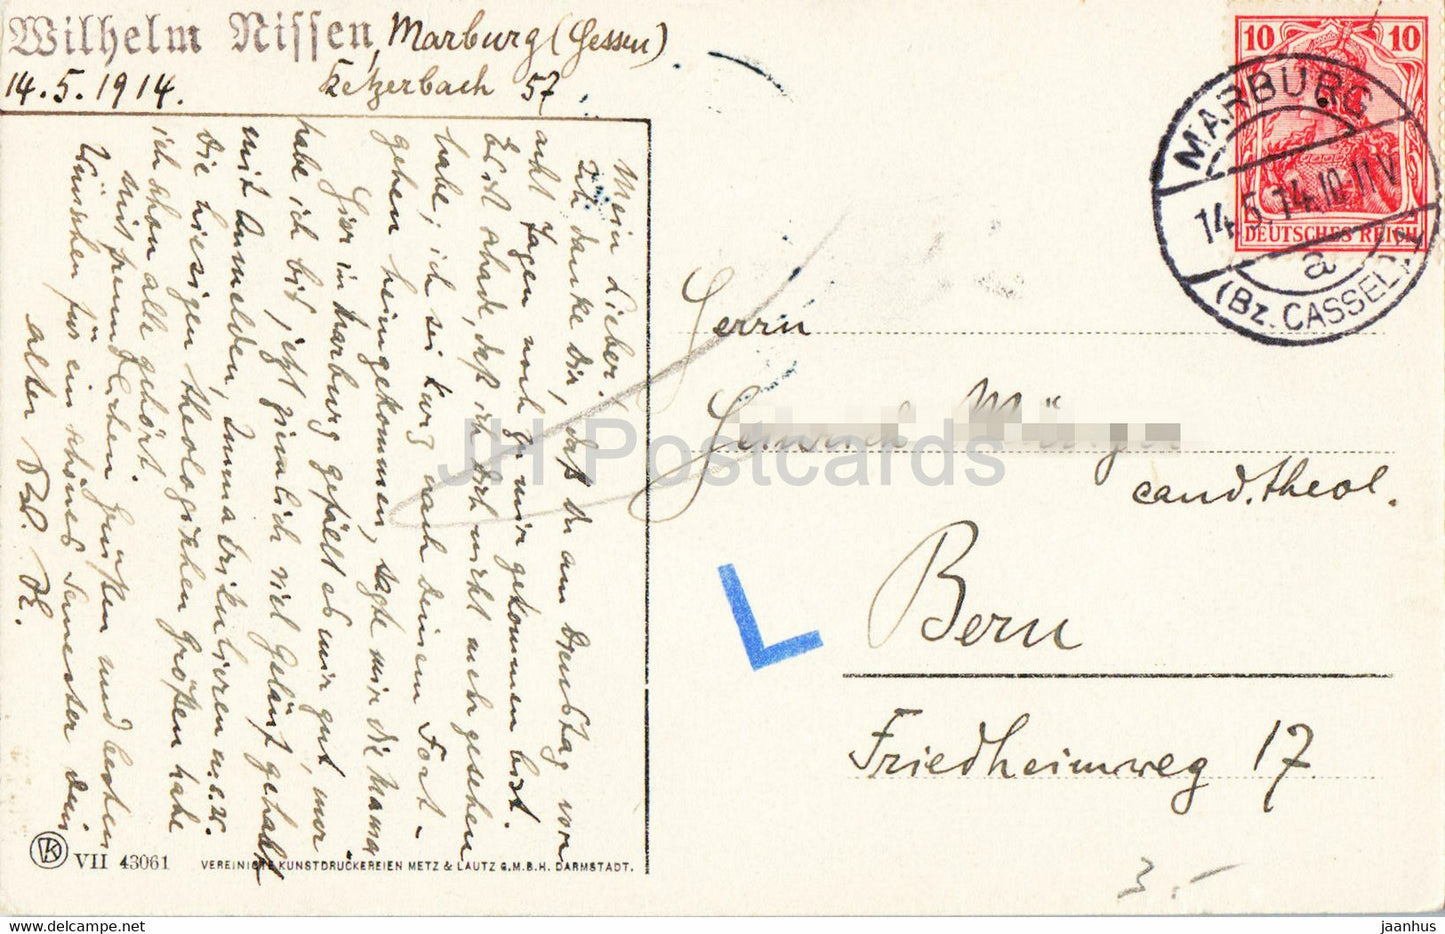 Wilhelm Nissen, Marburg (Hessen)
14.5.1914. Ketzerbach 57
Mein Lieber!
danke dir, daß du am Dienstag vor
acht Tagen noch zu mir gekommen bist.
Es ist schade, daß ich dich nicht mehr gesehen
habe; ich sei kurz nach deinem Fort-
gehen heimgekommen, sagte mir die Mama
Hier in Marburg gefällt es mir gut, nur
habe ich bis jetzt ziemlich viel Geläuf gehabt
mit Anmelden, Immatrikulieren u.s.w.
Die hiesigen theologischen Größen habe
ich schon alle gehört.
Mit freundlichen Grüßen und besten
Wünschen für ein schönes Semester dein
alter
MARBURG
14.5.14.10-11V
a
(Bz. CASSEL)
10 10
DEUTSCHES REICH
Herrn
cand. theol.
Bern
Friedheimweg 17.
L
3.-
VII 43061
VEREINIGTE KUNSTDRUCKEREIEN METZ & LAUTZ G.M.B.H. DARMSTADT.
JH Postcards
jaanhus